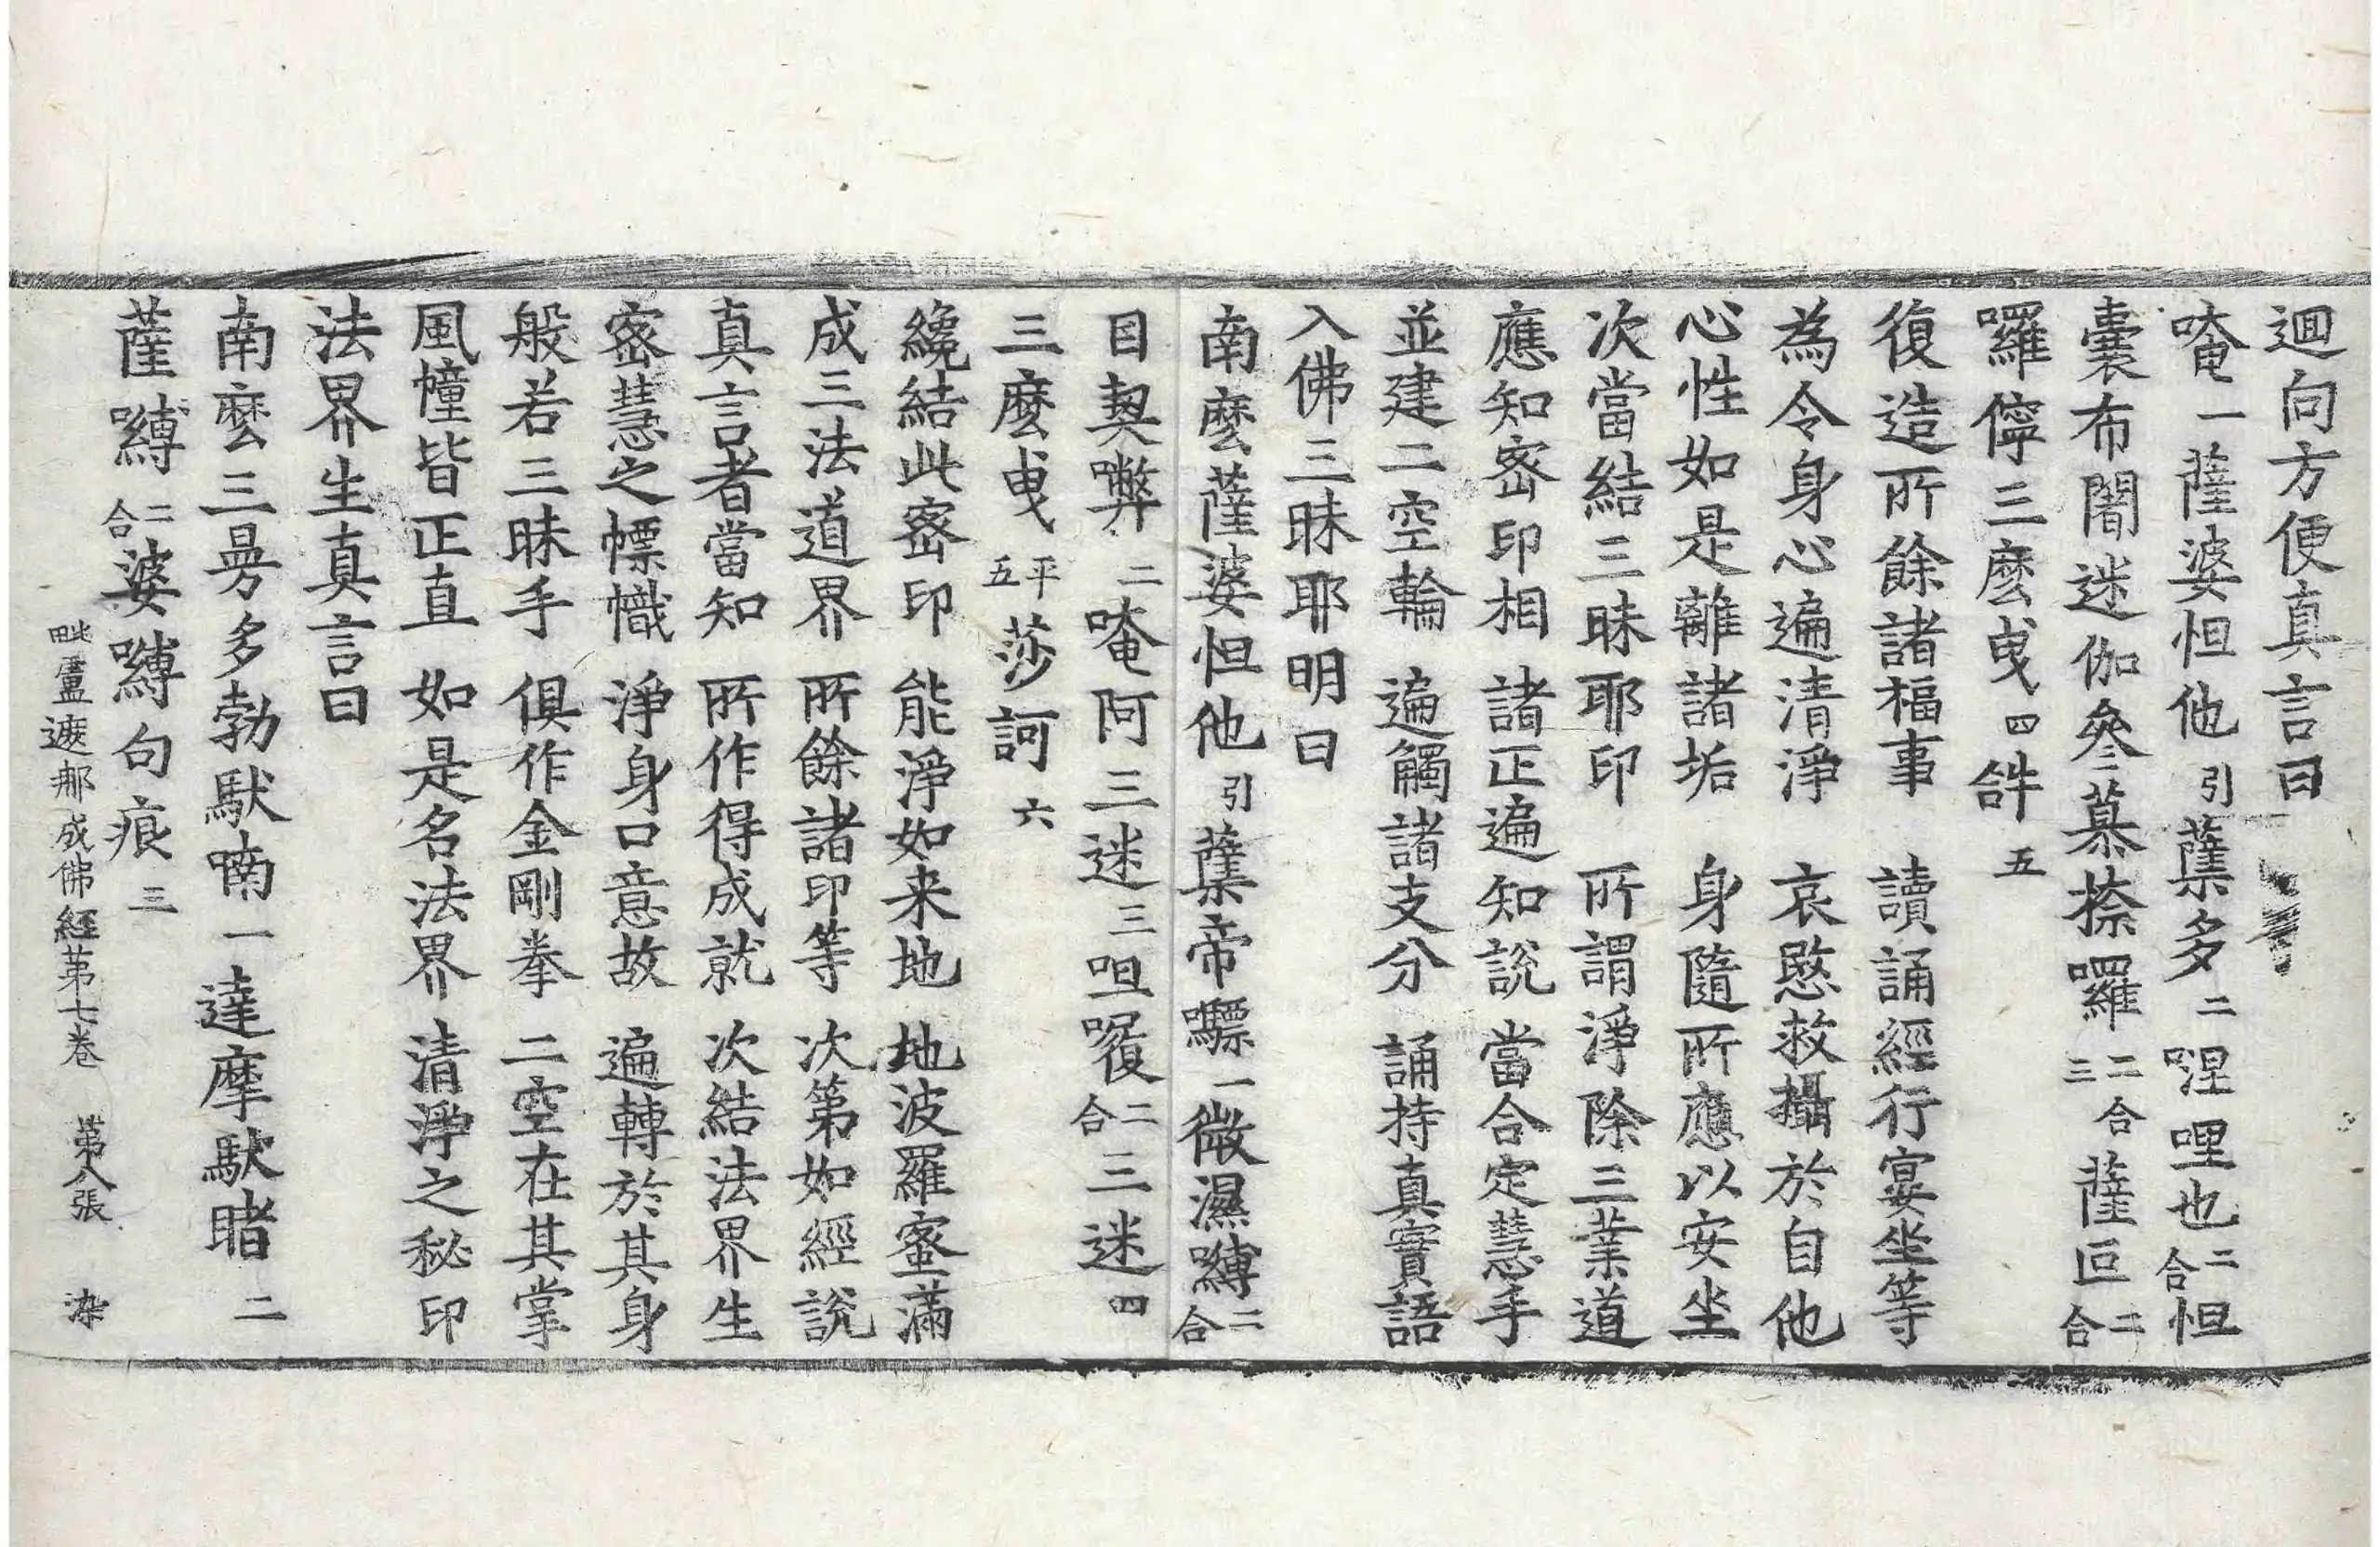 迴向方便真言曰
唵一薩婆怛他引蘖多二涅哩也二合怛
囊布闍迷伽參慕捺囉二合三薩叵二合
囉儜三麽曳四𤙖五
復造所餘諸福事 讀誦經行宴坐等
為令身心遍清淨 哀愍救攝於自他
心性如是離諸垢 身隨所應以安坐
次當結三昧耶印 所謂淨除三業道
應知密印相 諸正遍知說 當合定慧手
並建二空輪 遍觸諸支分 誦持真實語
入佛三昧耶明曰
南麽薩婆怛他引蘖帝驃一微濕嚩二合
目契弊二唵阿三迷三呾㘑二合三迷四
三麽曳平五莎訶六
纔結此密印 能淨如来地 地波羅蜜滿
成三法道界 所餘諸印等 次第如經說
真言者當知 所作得成就 次結法界生
密慧之幖幟 淨身口意故 遍轉於其身
般若三昧手 俱作金剛拳 二空在其掌
風幢皆正直 如是名法界 清淨之秘印
法界生真言曰
南麽三曼多勃馱喃一達摩馱睹二
薩嚩二合婆嚩句痕三
毗盧遮那成佛經第七卷 第八張 染